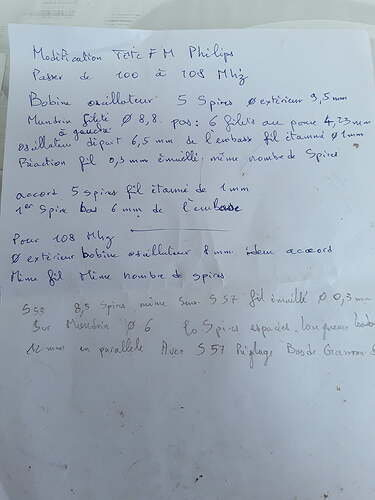 Modification Tête FM Philips
Passer de 100 à 108 Mhz
Bobine oscillateur 5 Spires Ø extérieur 9,5 mm
Mandrin fileté Ø 8,8. pas: 6 filets au pouce 4,23 mm
à gauche
oscillateur départ 6,5 mm de l'embase fil étamé Ø 1 mm
Réaction fil 0,3 mm émaillé même nombre de Spires
accord 5 spires fil étamé de 1 mm
1er Spire bas 6 mm de l'embase
Pour 108 Mhz
Ø extérieur bobine oscillateur 8 mm idem accord
Même fil Même nombre de spires
S59 8,5 Spires même sens S57 fil émaillé Ø 0,3 mm
Sur Mandrin Ø 6 Spires espacées. longueur
12 mm en parallèle Avec S57 Réglage Bas de Gamme